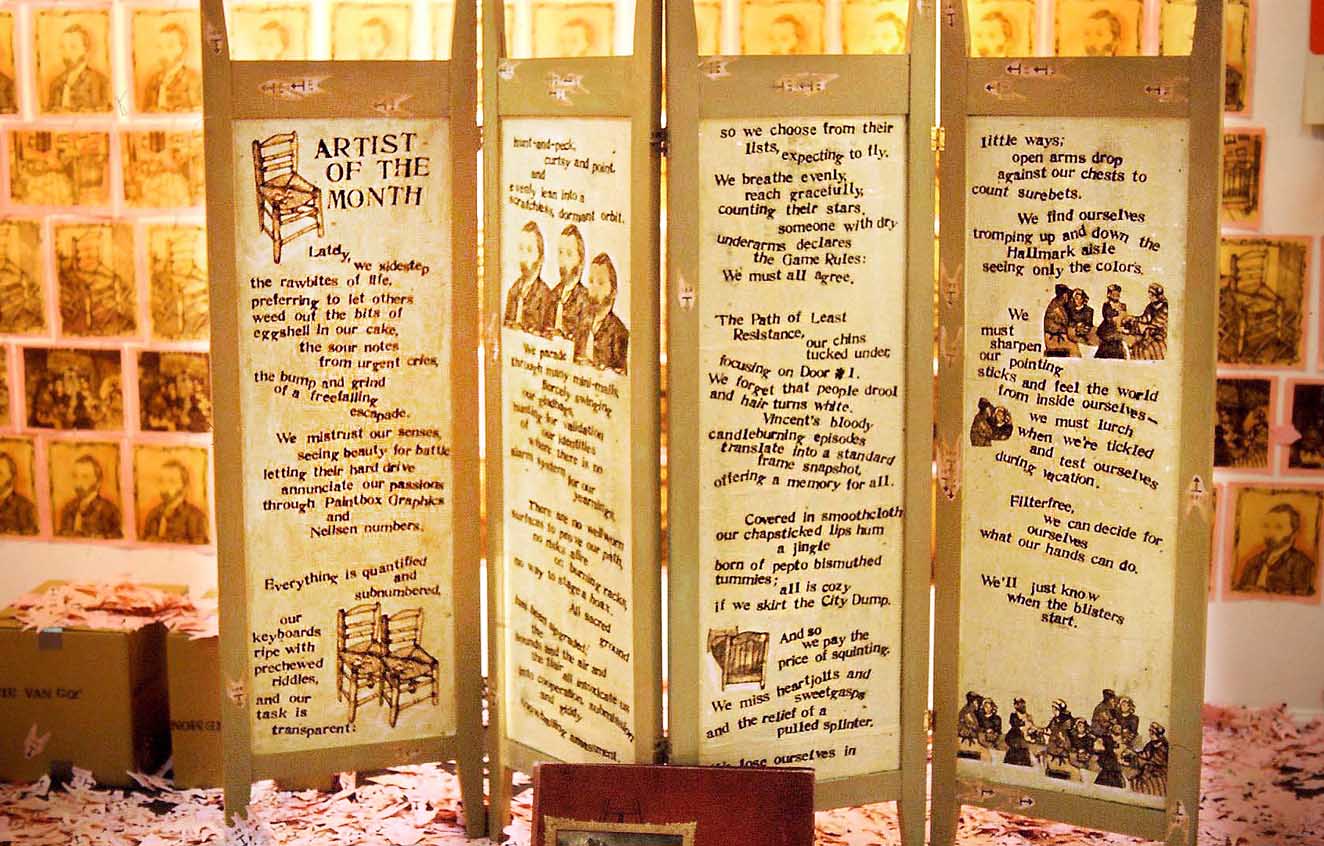 ARTIST
OF THE
MONTH
Lately,
we sidestep
the rawbites of life,
preferring to let others
weed out the bits of
eggshell in our cake,
the sour notes
from urgent cries,
the bump and grind
of a freefalling
escapade.
We mistrust our senses,
seeing beauty for battle
letting their hard drive
annunciate our passions
through Paintbox Graphics
and
Neilsen numbers.
Everything is quantified
and
subnumbered,
our
keyboards
ripe with
prechewed
riddles,
and our
task is
transparent:
hunt-and-peck,
curtsy and point,
and
evenly lean into a
scratchless, dormant orbit.
We parade
through many mini-malls,
fiercely swinging
our gladbags,
hunting for validation
of our identities
where there is no
alarm system for our
yearnings.
There are no well-worn
surfaces to prove our path,
no risks afire
on burning racks,
no way to stage a hoax.
All sacred
ground
has been upgraded;
the air and
all intoxicate us
into cooperation, submission,
and giddy
assessment.
so we choose from their
lists, expecting to fly.
We breathe evenly,
reach gracefully,
counting their stars,
someone with dry
underarms declares
the Game Rules:
We must all agree.
The Path of Least
Resistance,
our chins
tucked under,
focusing on Door #1.
We forget that people drool
and hair turns white.
Vincent's bloody
candleburning episodes
translate into a standard
frame snapshot,
offering a memory for all.
Covered in smoothcloth
our chapsticked lips hum
a jingle
born of pepto bismuthed
tummies;
all is cozy
if we skirt the City Dump.
And so
we pay the
price of squinting.
We miss heartjolts and
sweetgasps
and the relief of a
pulled splinter.
We lose ourselves in
little ways;
open arms drop
against our chests to
count surebets.
We find ourselves
tromping up and down the
Hallmark aisle
seeing only the colors.
We
must
sharpen
our pointing
sticks and feel the world
from inside ourselves—
we must lurch
when we're tickled
and test ourselves
during vacation.
Filterfree,
we can decide for
ourselves
what our hands can do.
We'll just know
when the blisters
start.
VAN GO